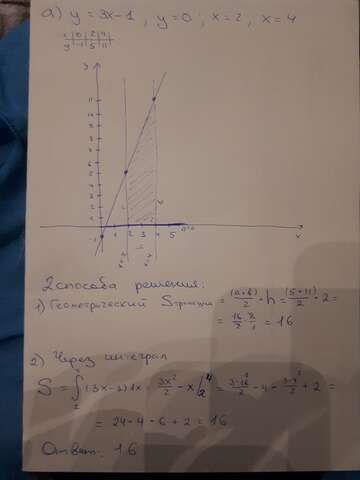 а) y = 3x-1 , y=0 ; x=2 , x=4
x | 0 | 2 | 4
y | -1 | 5 | 11
y
11
5
-1
1 2 3 4 5
y=0
x
x=2
x=4
2 способа решения:
1) Геометрический Sтрапеции = (a+b)/2 · h = (5+11)/2 · 2 =
= 16/2 · 2/1 = 16
2) Через интеграл
S = ∫ (3x-1)dx = 3x²/2 - x |₂⁴ = 3·16/2 - 4 - 3·4/2 + 2 =
= 24-4-6+2 = 16
Ответ: 16